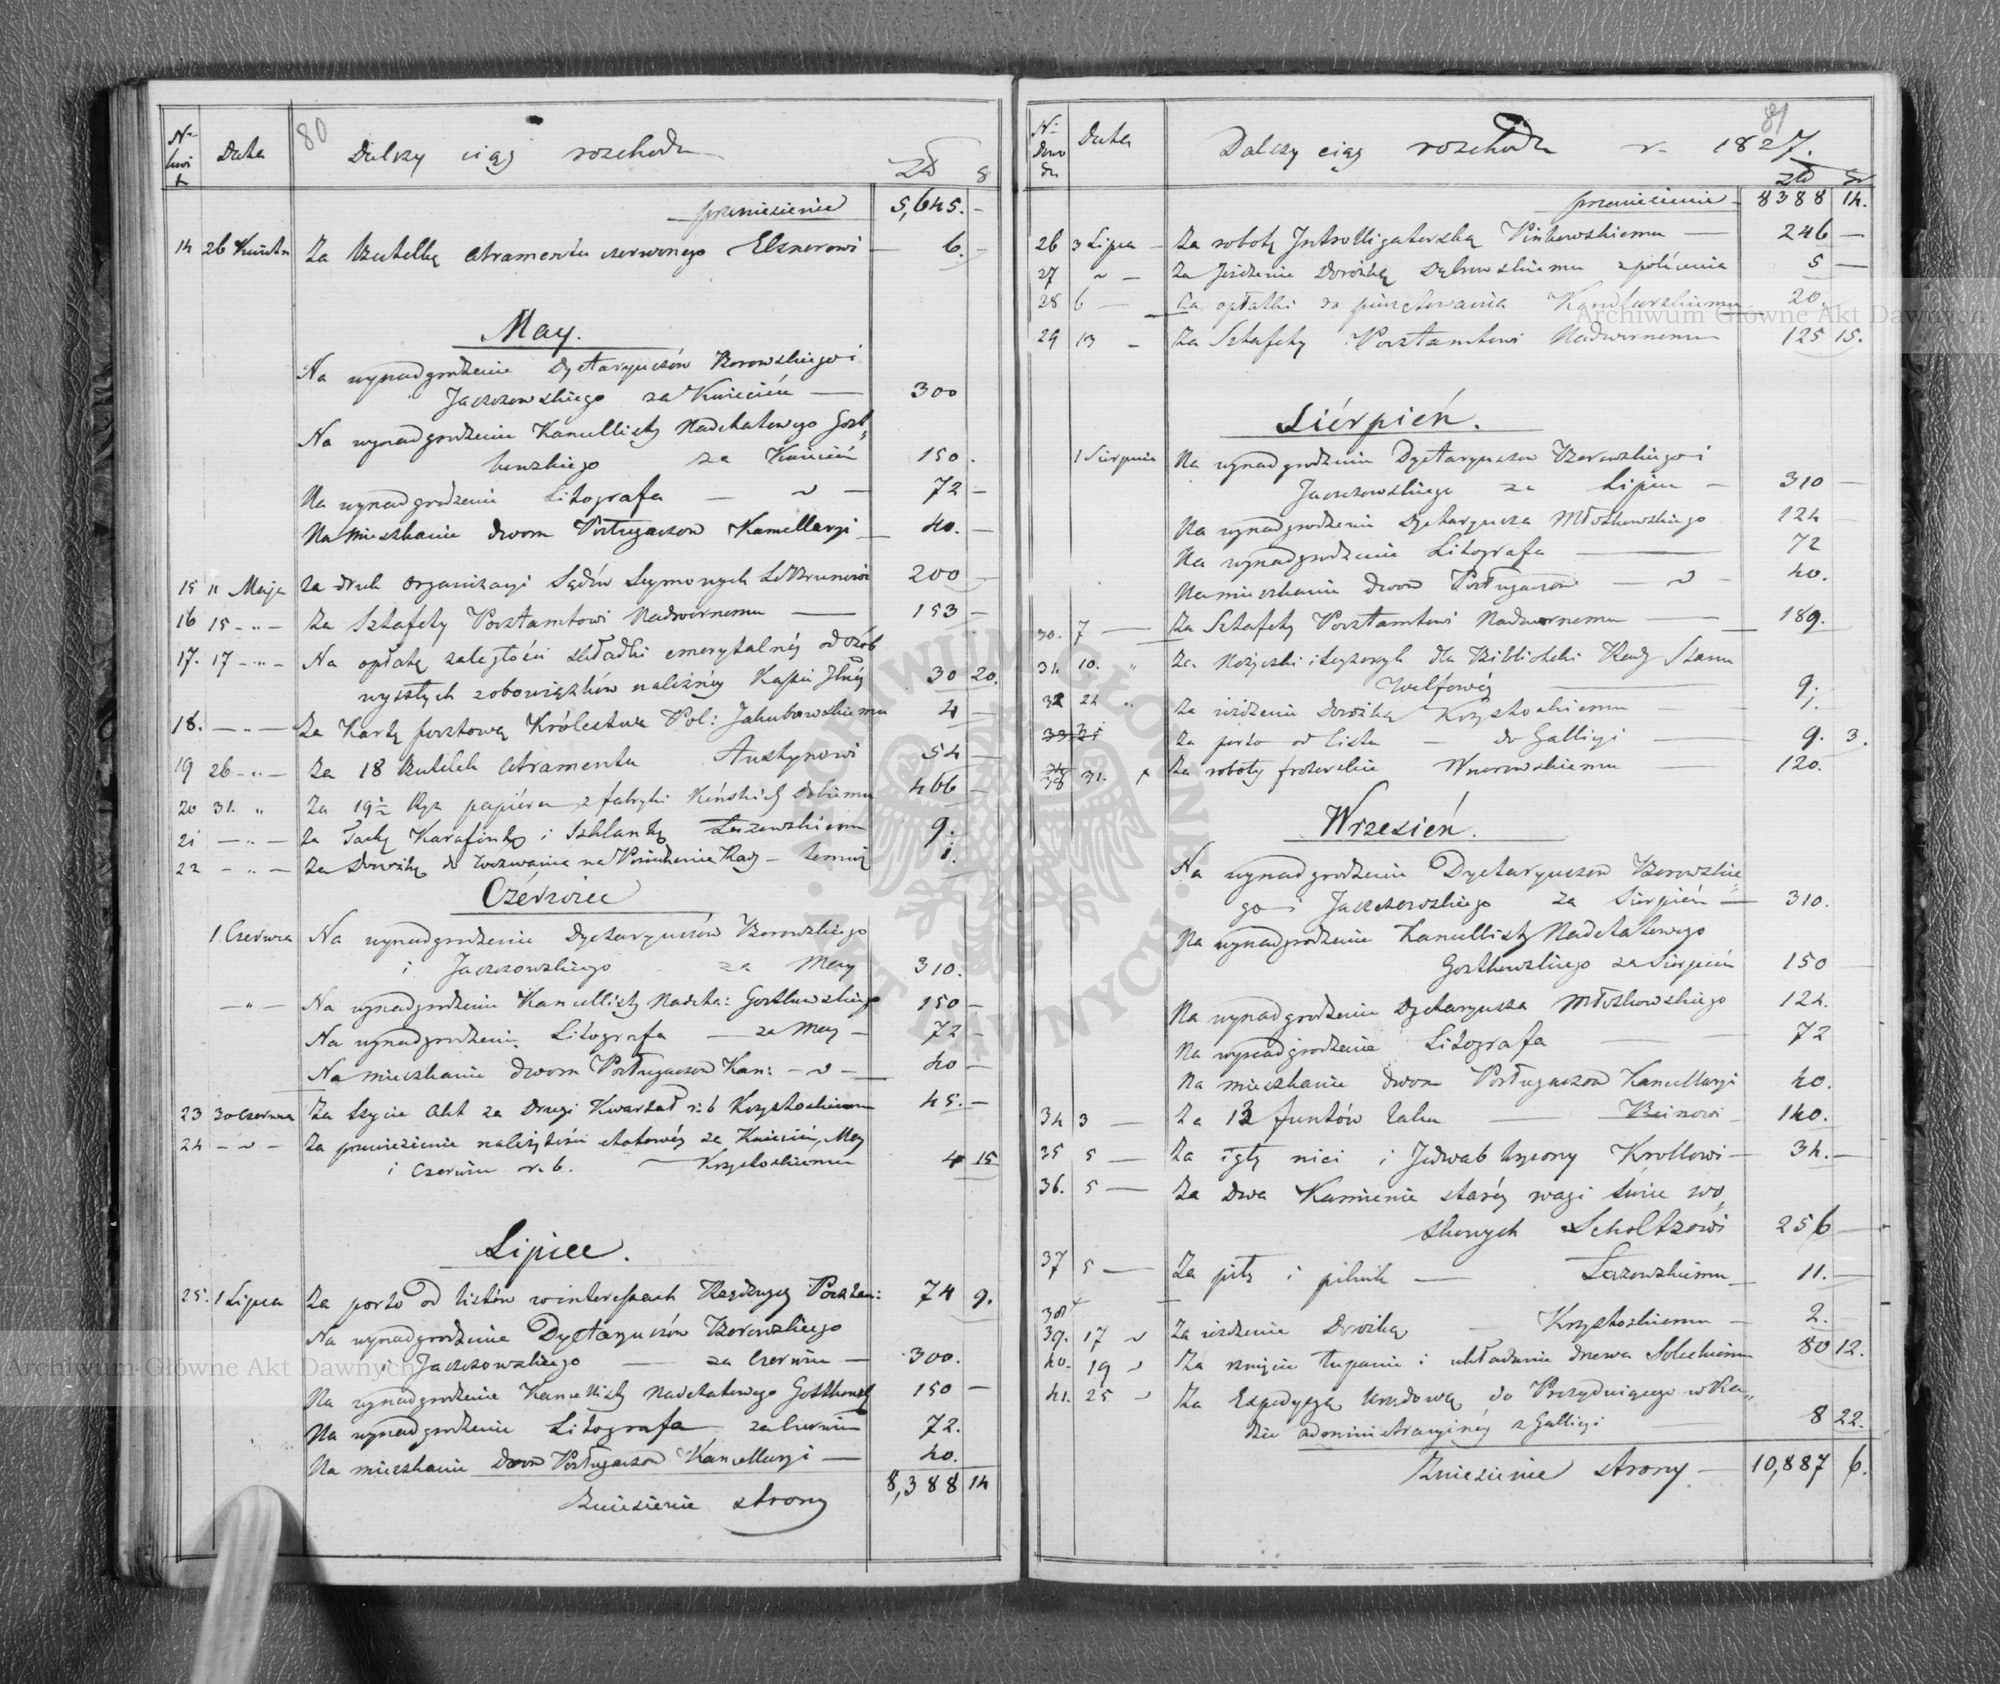 80
N-
kwi
t
Data
Dalszy ciąg rozchodu
Zł g
przeniesienie 5,645. -
14 26 Kwietn Za butelkę atramentu czerwonego Elsnerowi - 6. -
May.
Na wynadgrodzenie Dyetaryuszów Borowskiego i
Jaczewskiego za Kwiecień - 300
Na wynadgrodzenie Kancellisty Nadetatowego Gost-
kowskiego za Kwiecień 150.
Na wynadgrodzenie Litografa - " - 72 -
Na mieszkanie dwom Posługaczom Kancellaryi - 40. -
15 11 Maja Za druk organizacyi Sądów Seymowych 200 -
16 15 - " - Za Sztafety Pocztamtowi Nadwornemu - 153 -
17. 17 - " - Na opłatę zaległości składki emerytalnéj od osób
wyszłych z obowiązków należnéj Kassie 30 20.
18. - " - Za Kartę pocztową Królestwa Pol: Jakubowskiemu 4 -
19 26 - " - Za 18 butelek atramentu Austynowi 54 -
20 31. " Za 19½ Ryz papiéru z fabryki 466 -
21 - " - Za Tackę Karafinkę i Szklankę 9.
22 - " - Za dorożkę do wzywania na Posiedzenie Rady - 1.
Czérwiec
1 Czerwca Na wynadgrodzenie Dyetaryuszów Borowskiego
i Jaczewskiego za May 310.
- " - Na wynadgrodzenie Kancellisty Nadeta: Gostkowskiego 150 -
Na wynadgrodzenie Litografa - za May - 72 -
Na mieszkanie dwom Posługaczom Kan: - " - 40 -
23 30 Czerwca Za szycie Akt za Drugi Kwartał r: b Krzyskoskiemu 45. -
24 - " - Za przeniesienie należytości etatowéj za Kwiecień, May
i Czerwiec r. b. - Krzyskoskiemu 4 15
Lipiec.
25. 1 Lipca Za porto od listów w interessach 74 9.
Na wynadgrodzenie Dyetaryuszów Borowskiego
i Jaczewskiego - za Czerwiec - 300.
Na wynadgrodzenie Kancellisty Nadetatowego 150 -
Na wynadgrodzenie Litografa za Czerwiec 72.
Na mieszkanie dwom Posługaczom Kancellaryi - 40.
Zniesienie strony 8,388 14
81
N-
dowo
du
Data
Dalszy ciąg rozchodu r. 1827.
Zł Gr
przeniesienie - 8388 14.
26 3 Lipca - Za robotę Introlligatorską Pińkowskiemu - 246 -
27 " - Za jeżdżenie Dorożką Dąbrowskiemu z polécenia 5 -
28 6 - Za opłatki do pieczętowania 20.
29 13 - Za Sztafety Pocztamtowi Nadwornemu 125 15.
Siérpień.
1 Sierpnia Na wynadgrodzenie Dyetaryuszów Borowskiego i
Jaczewskiego za Lipiec - 310 -
Na wynadgrodzenie Dyetaryusza Młoskowskiego 124 -
Na wynadgrodzenie Litografa - 72
Na mieszkanie dwom Posługaczom - " - 40.
30. 7 - Za Sztafety Pocztamtowi Nadwornemu - 189.
31. 10. " Za Nożyczki i dla Biblioteki Rady Stanu
9.
32 24 " Za jeżdżenie dorożką Krzyskoskiemu - 9.
33. 21 Za porto od listu - do Gallicyi - 9. 3.
31. Za roboty froterskie - 120.
Wrzesień.
Na wynadgrodzenie Dyetaryuszów Borowskie-
go i Jaczewskiego za Sierpień - 310.
Na wynadgrodzenie Kancellisty Nadetatowego
Gostkowskiego za Sierpień 150
Na wynadgrodzenie Dyetaryusza Młoskowskiego 124.
Na wynadgrodzenie Litografa - 72
Na mieszkanie dwom Posługaczom Kancellaryi 40.
34 3 - Za 13 funtów laku - 140.
35 5 - Za igły nici i Jedwab Krollowi - 34. -
36. 5 - Za dwa Kamienie staréj wagi świec wo,,
skowych Scholtzowi 256 -
37 5 - Za piłę i pilnik - 11. -
38
39. 17 " Za jeżdżenie Dorożką - Krzyskoskiemu - 2. -
40. 19 " Za rznięcie łupanie i układanie drzewa 80 12.
41. 25 " Za Expedycyą Urzędową do Prezyduiącego w Ra,,
dzie administracyinéy z Gallicyi 8 22.
Zniesienie strony - 10,887 6.
Archiwum Główne Akt Dawnych
Archiwum Główne Akt Dawnych
ARCHIWUM GŁÓWNE AKT DAWNYCH